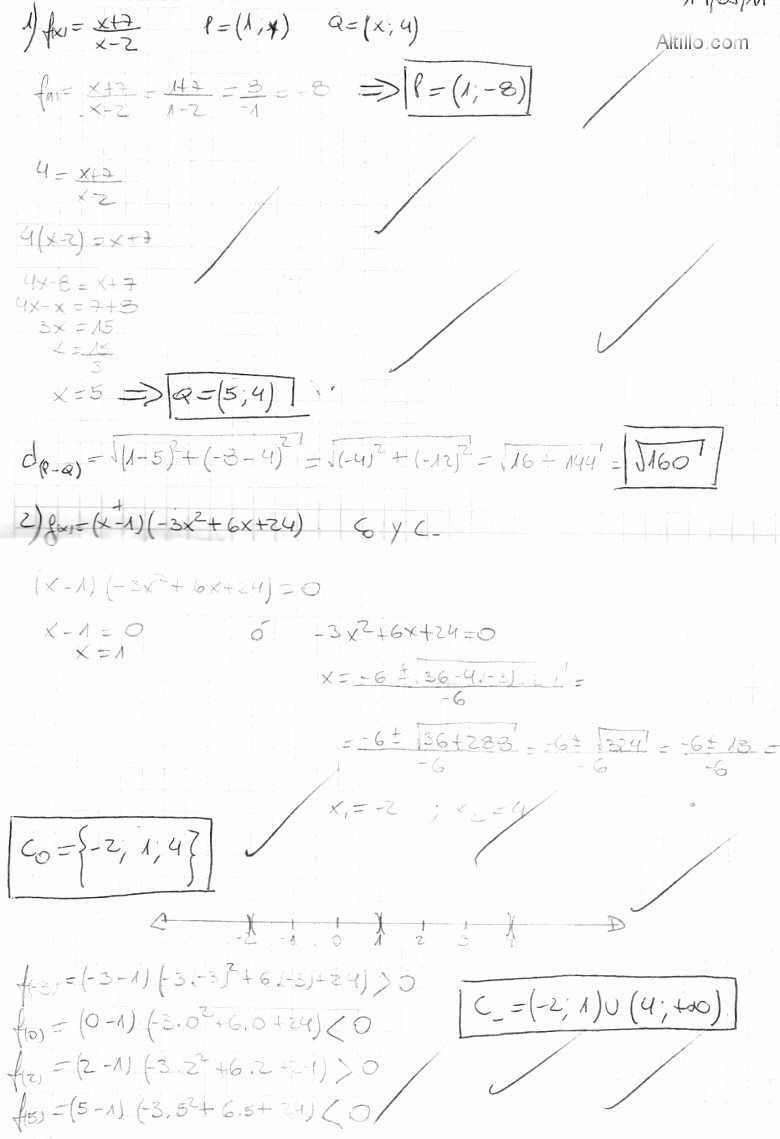 1) f(x) = (x+7)/(x-2) P = (1; y) Q = (x; 4)
Altillo.com
f(1) = (x+7)/(x-2) = (1+7)/(1-2) = 8/-1 = -8 ⇒ P = (1; -8)
4 = (x+7)/(x-2)
4(x-2) = x+7
4x-8 = x+7
4x-x = 7+8
3x = 15
x = 15/3
x = 5 ⇒ Q = (5; 4)
d(P-Q) = √((1-5)² + (-8-4)²) = √((-4)² + (-12)²) = √(16 + 144) = √160
2) f(x) = (x-1)(-3x² + 6x + 24) C₀ y C₋
(x-1)(-3x² + 6x + 24) = 0
x-1 = 0 ó -3x² + 6x + 24 = 0
x = 1
x = (-6 ± √(36-4.(-3). )) / -6 =
= (-6 ± √(36+288)) / -6 = (-6 ± √324) / -6 = (-6 ± 18) / -6 =
x₁ = -2 ; x₂ = 4
C₀ = {-2; 1; 4}
-2 -1 0 1 2 3 4
f(-3) = (-3-1)(-3.(-3)² + 6.(-3) + 24) > 0
C₋ = (-2; 1) ∪ (4; +∞)
f(0) = (0-1)(-3.0² + 6.0 + 24) < 0
f(2) = (2-1)(-3.2² + 6.2 + 24) > 0
f(5) = (5-1)(-3.5² + 6.5 + 24) < 0